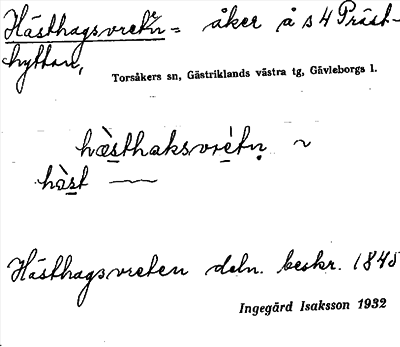 Hästhagsvretn = åker å s 4 Präst-
hyttan,
Torsåkers sn, Gästriklands västra tg, Gävleborgs l.
hæ̀sthaksvrétn ~
hàst —
Hästhagsvreten deln. beskr. 1848
Ingegärd Isaksson 1932